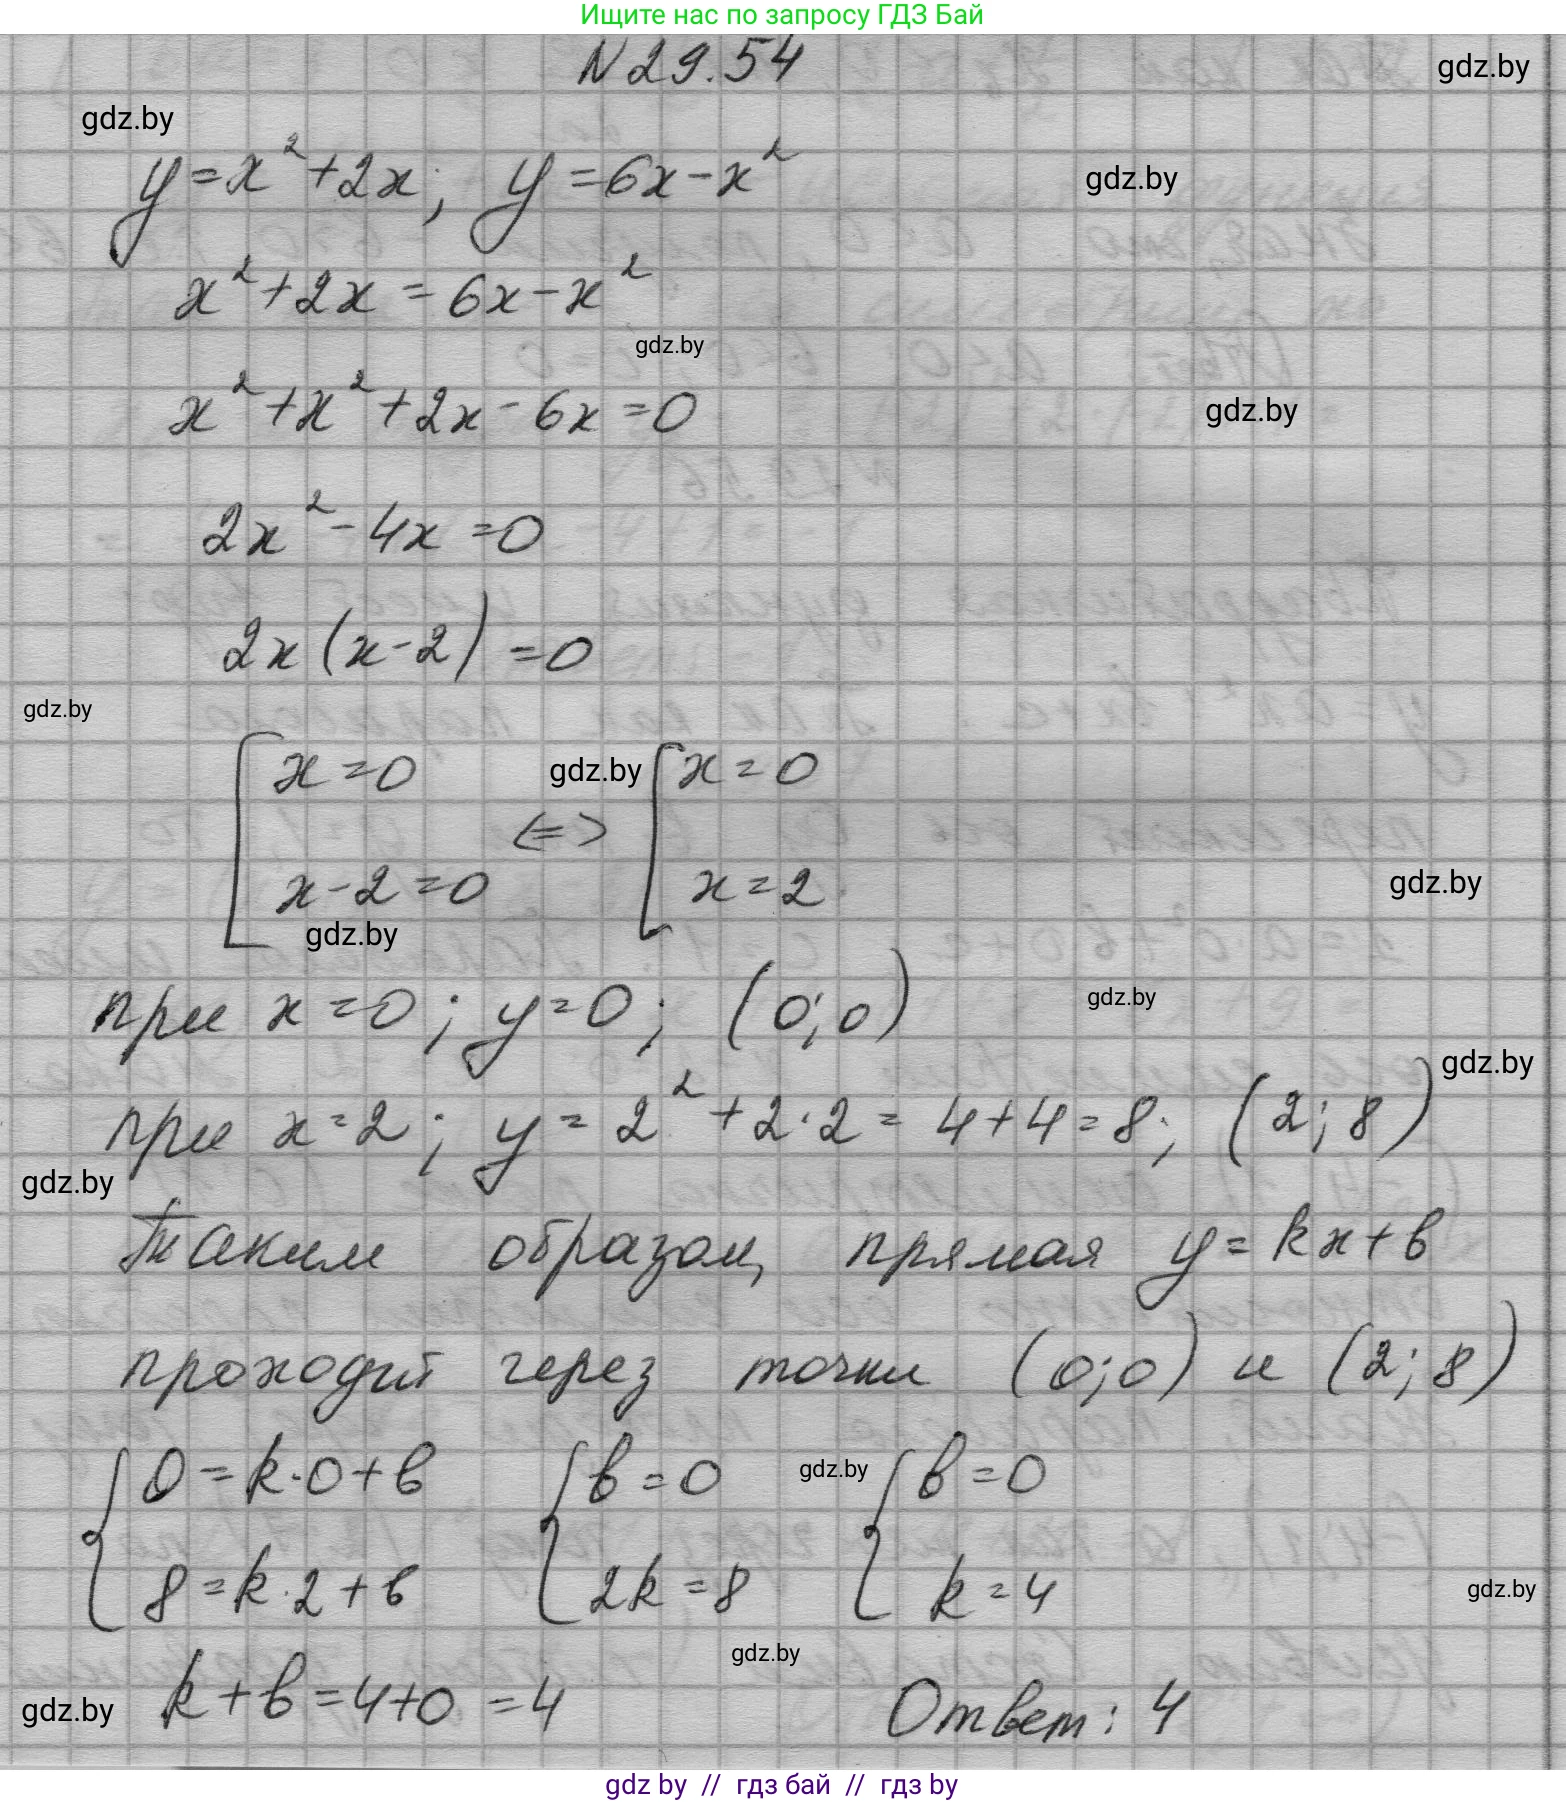 Ищите нас по запросу ГДЗ Бай
N 29.54
gdz.by
gdz.by
y = x² + 2x; y = 6x - x²
gdz.by
x² + 2x = 6x - x²
gdz.by
x² + x² + 2x - 6x = 0
gdz.by
2x² - 4x = 0
2x (x - 2) = 0
gdz.by
[ x = 0 gdz.by [ x = 0
<=>
x - 2 = 0 x = 2
gdz.by
gdz.by
при x = 0; y = 0; (0; 0)
gdz.by
gdz.by
при x = 2; y = 2² + 2·2 = 4 + 4 = 8; (2; 8)
gdz.by
Таким образом, прямая y = kx + b
проходит через точки (0; 0) и (2; 8)
{ 0 = k·0 + b { b = 0 gdz.by { b = 0
8 = k·2 + b 2k = 8 k = 4
gdz.by
gdz.by
gdz.by k + b = 4 + 0 = 4 Ответ: 4
gdz by // гдз бай // гдз by